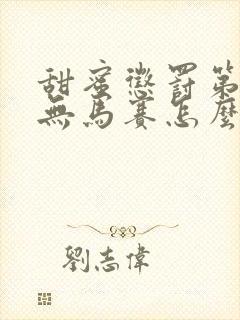 甜蜜懲罰第
無馬賽怎麼
劉志偉